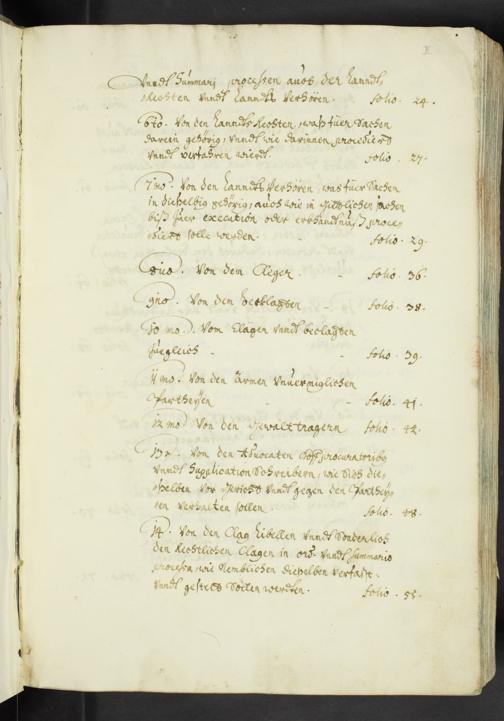 II
Vnndt Summarj processen aus den Lanndts
Rechten vnndt Lanndts Verhören. folio. 24.
6to. Von den Lanndts Rechten, was fuer Sachen
darein gehörig, vnndt wie darinnen procediert
vnndt verfahren wierdt. folio. 27.
7mo. Von den Lanndts Verhören, was fuer Sachen
in dieselbig gehörig, auch wie in sachen
biß zuer execution oder erkhandtnuß proce-
diert solle werden. folio. 29.
8uo. Von dem Cleger. folio. 36.
9no. Von den beclagten - folio. 38.
10 mo. Vom Clagen vnndt beclagten
zuegleich - - folio. 39.
11 mo. Von den Armen vnuermiglichen
Partheyen - - folio. 41.
12 mo Von den Gewalttragern folio. 42.
13. Von den Aduocaten procuratoribus
vnndt Supplication Schreibern, wie Sich die-
selben vor gericht vnndt gegen den Partheyen
verhalten sollen. folio. 48.
14. Von den Clag Libellen vnndt Sonderlich
den Rechtlichen Clagen in ord. vnndt Summario
processu, wie Nemblichen dieselben verfasst
vnndt gestelt Sollen werden. folio. 55.